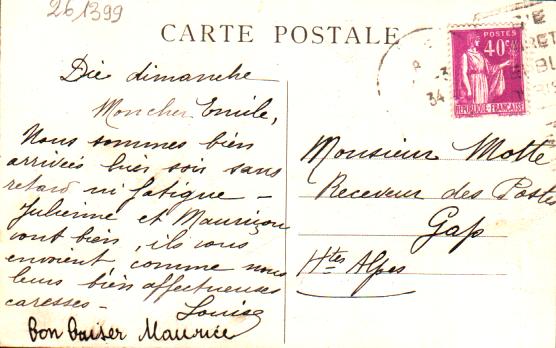 261399
CARTE POSTALE
POSTES
40c
REPUBLIQUE FRANÇAISE
34
Die dimanche
Mon cher Emile,
Nous sommes bien
arrivés hier soir sans
retard ni fatigue –
Julienne et Mauriçou
vont bien, ils vous
envoient comme nous
leurs bien affectueuses
caresses – Louise
bon baiser Maurice
Monsieur Motte
Receveur des Postes
Gap
Htes Alpes